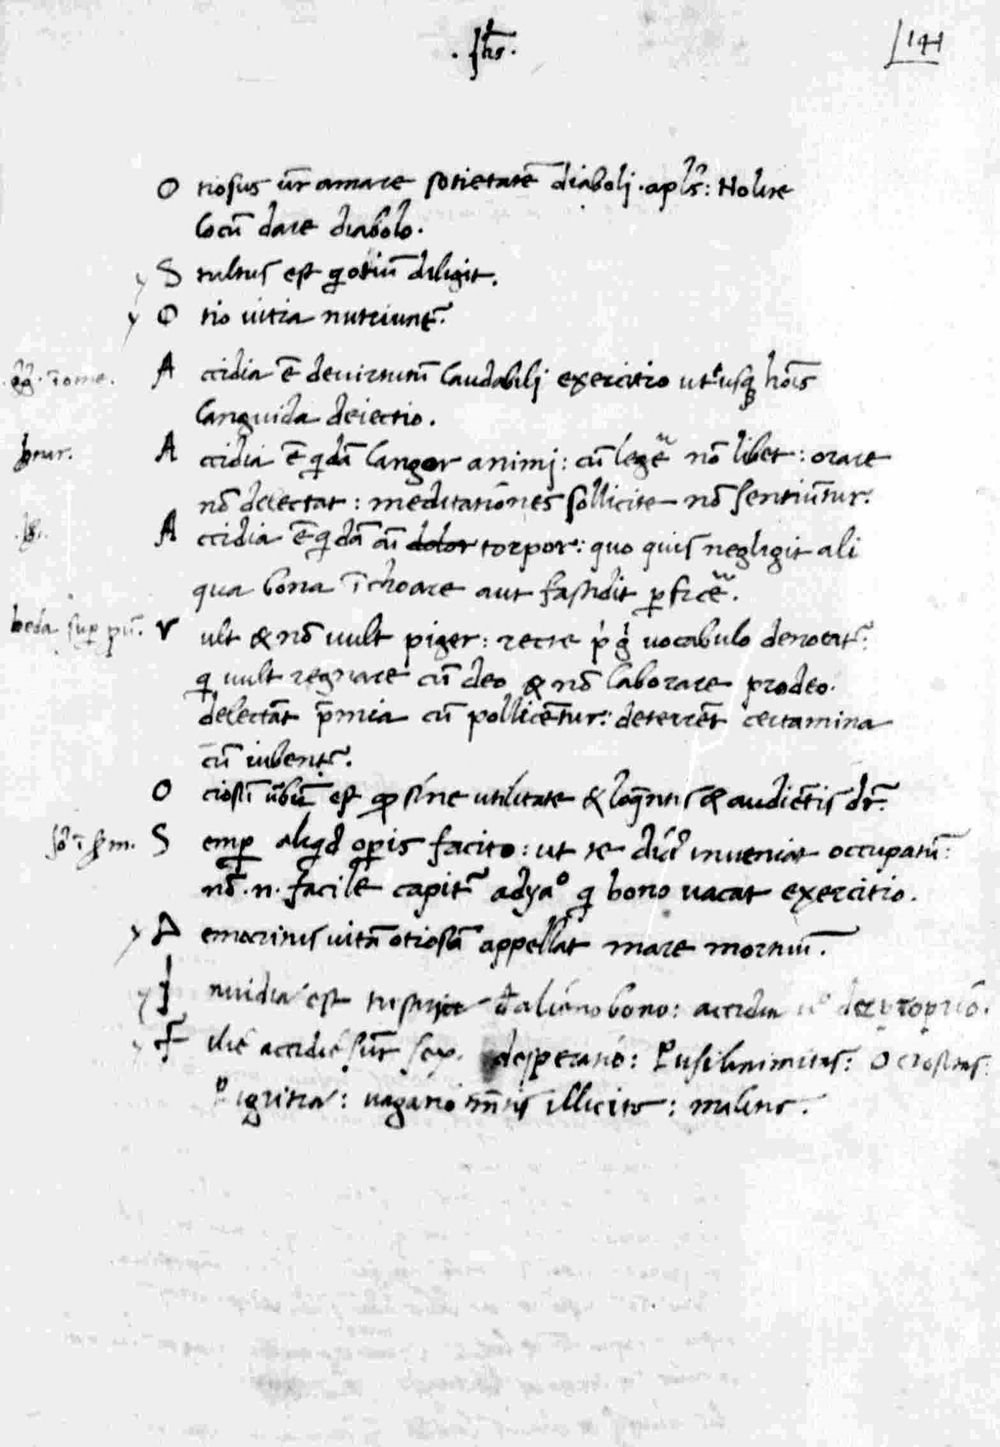 . Jħs .
141
O tiosus ūr amare sotietatē diaboli . apl's : Nolite
locū dare diabolo .
y S tultus est q otiū diligit .
y O tio uitia nutriunt~ .
gg. ī ome. A ccidia ē de uirtutū laudabili exercitio utriusq hoīs
languida deiectio .
A ccidia ē qdā langor animi : cū legē nō libet : orare
nō delectat : meditatiōnes sollicite nō sentiūtur :
A ccidia ē qdā aī dolor torpor : quo quis negligit ali
qua bona ī choare aut fastidit pficē .
beda sup pū. V ult & nō uult piger : recte p'g' vocabulo denotat~ :
q uult regnare cū deo & nō laborare pro deo .
delectāt p̄mia cū pollicēntur : deterrēt certamina
cū iubent~ .
O ciosū ūbū est qd sine utilitate & loq̄ntis & audiētis dr̄ .
S emp aliqd opis facito : ut te inueniat occupatū :
nō . n . facile capit~ a dya° q bono uacat exercitio .
y D emocritus uitā otiosā appellat mare mortuū .
y J nuidia est tristitia d alieno bono : accidia u° de proprio .
y F ilie accidie sūt sex . desperatio : Pusilanimitas : Ociositas :
Pigritia : uagatio mētis illicita : malitia .